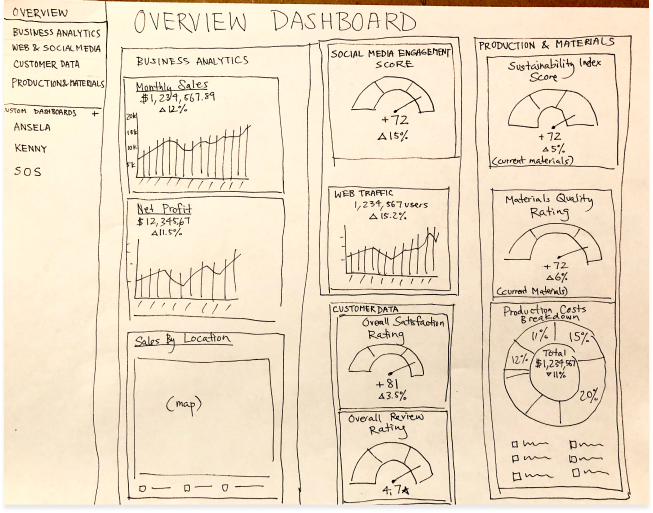 OVERVIEW
BUSINESS ANALYTICS
WEB & SOCIAL MEDIA
CUSTOMER DATA
PRODUCTION & MATERIALS
USTOM DASHBOARDS +
ANSELA
KENNY
SOS
OVERVIEW DASHBOARD
BUSINESS ANALYTICS
Monthly Sales
$1,234,567.89
△12%
20k
15k
10k
5k
Net Profit
$12,34567
△11.5%
Sales By Location
(map)
SOCIAL MEDIA ENGAGEMENT
SCORE
+72
△15%
WEB TRAFFIC
1,234,567 users
△15.2%
CUSTOMER DATA
Overall Satisfaction
Rating
+81
△3.5%
Overall Review
Rating
4.7★
PRODUCTION & MATERIALS
Sustainability Index
Score
+72
△5%
(current materials)
Materials Quality
Rating
+72
△6%
(Current Materials)
Production Costs
Breakdown
11% 15%
12%
Total
$1,234,567
▼11%
20%